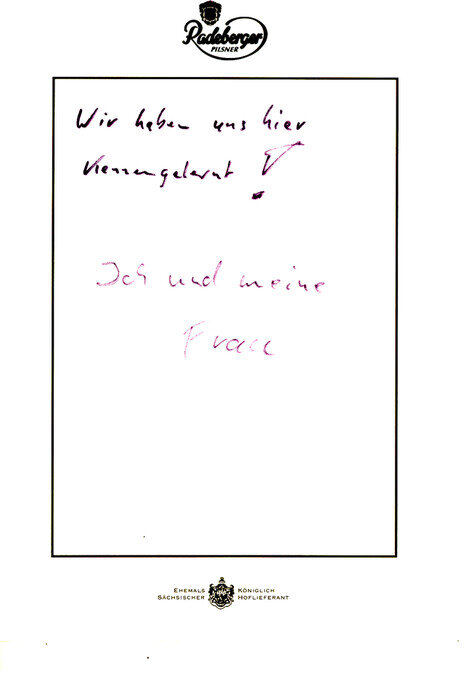 Radeberger
PILSNER
Wir haben uns hier
kennengelernt !
Ich und meine
Frau
EHEMALS KÖNIGLICH
SÄCHSISCHER HOFLIEFERANT